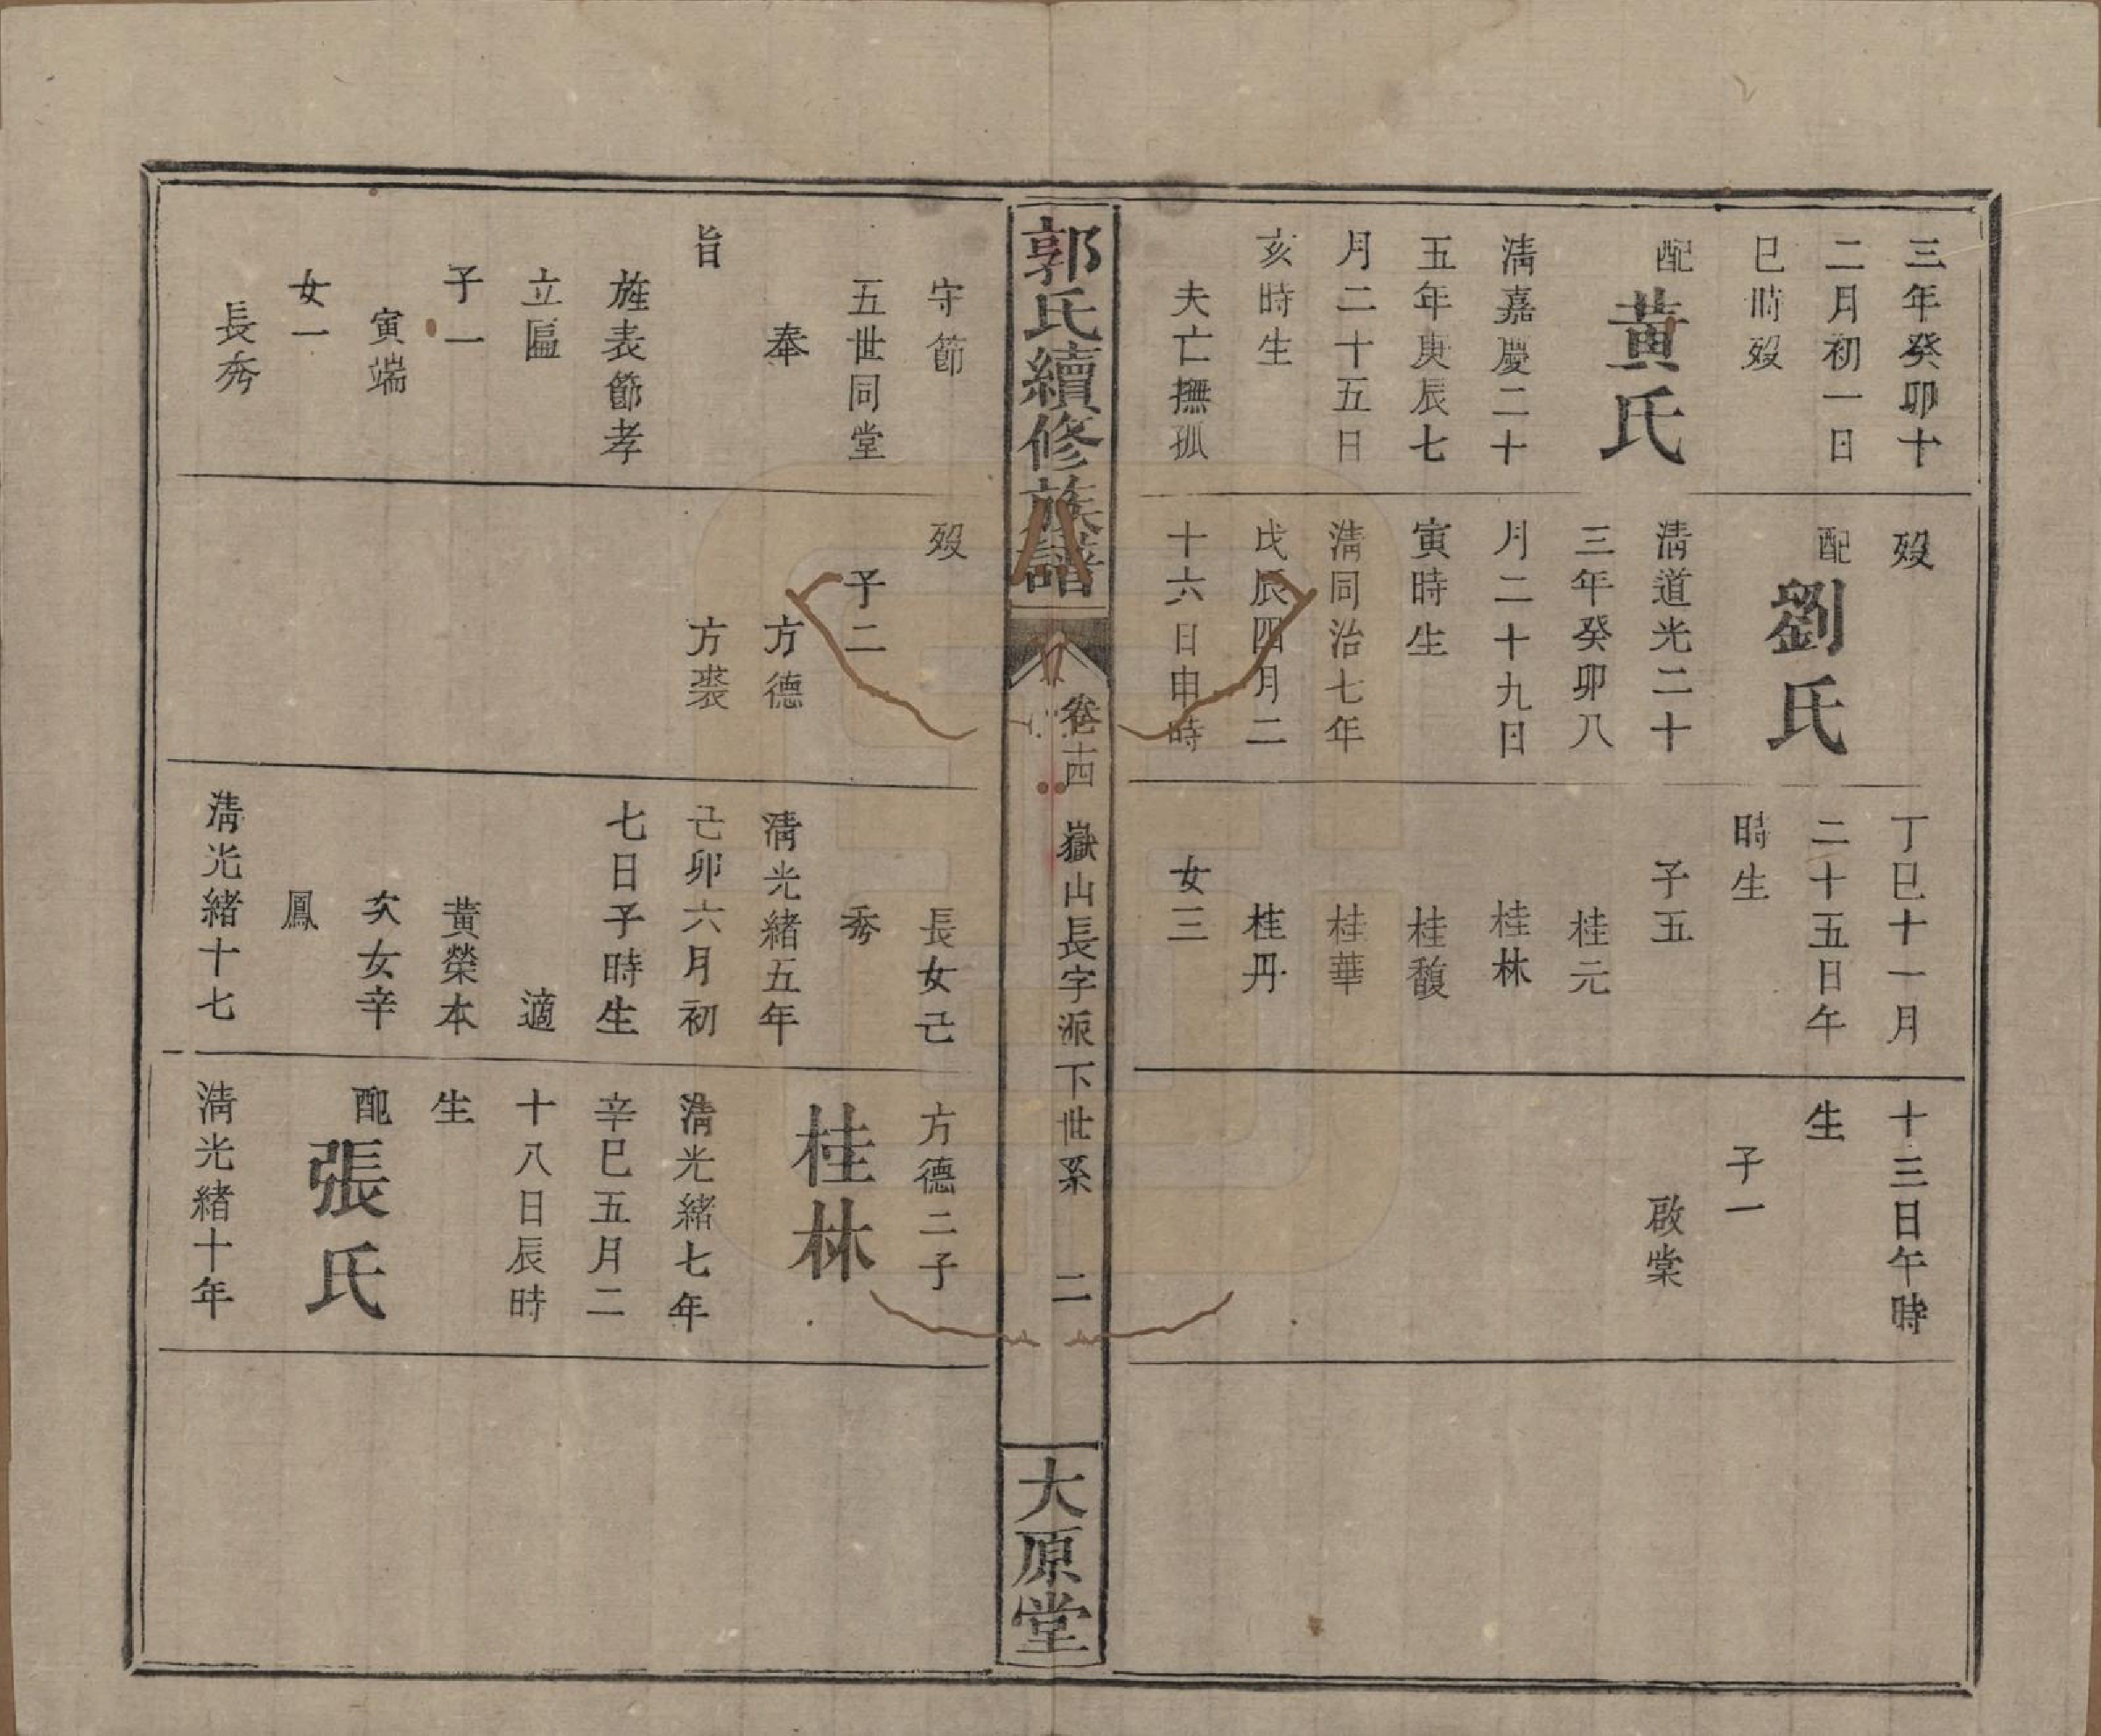 三年癸卯十
二月初一日
巳時歿
配黃氏
清嘉慶二十
五年庚辰七
月二十五日
亥時生
夫亡撫孤
歿
配劉氏
清道光二十
三年癸卯八
月二十九日
寅時生
清同治七年
戊辰四月二
十六日申時
丁巳十一月
二十五日午
時生
子五
桂元
桂林
桂馥
桂華
桂丹
女三
十三日午時
生
子一
啟棠
郭氏續修族譜
卷十四
嶽山長字派下世系
二
大原堂
守節
五世同堂
奉
旨
旌表節孝
立匾
子一
寅端
女一
長秀
歿
子二
方德
方裘
長女己
秀
清光緒五年
己卯六月初
七日子時生
適
黃榮本
次女辛
鳳
清光緒十七
方德二子
桂林
清光緒七年
辛巳五月二
十八日辰時
生
配張氏
清光緒十年